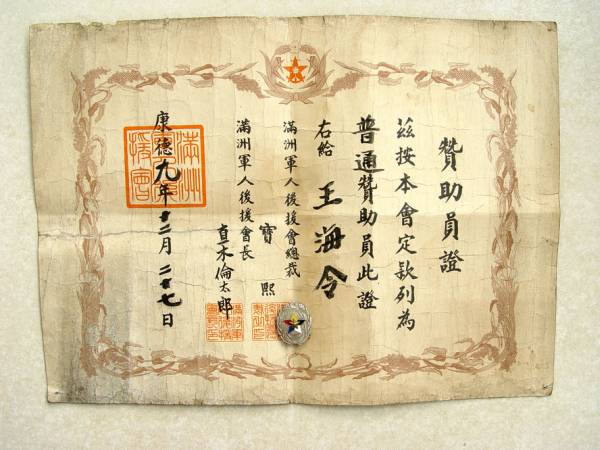 贊助員證
茲按本會定款列為
普通贊助員此證
右給 王海令
滿洲軍人後援會總裁 寶熙
滿洲軍人後援會長 直木倫太郎
康德九年十二月二十七日